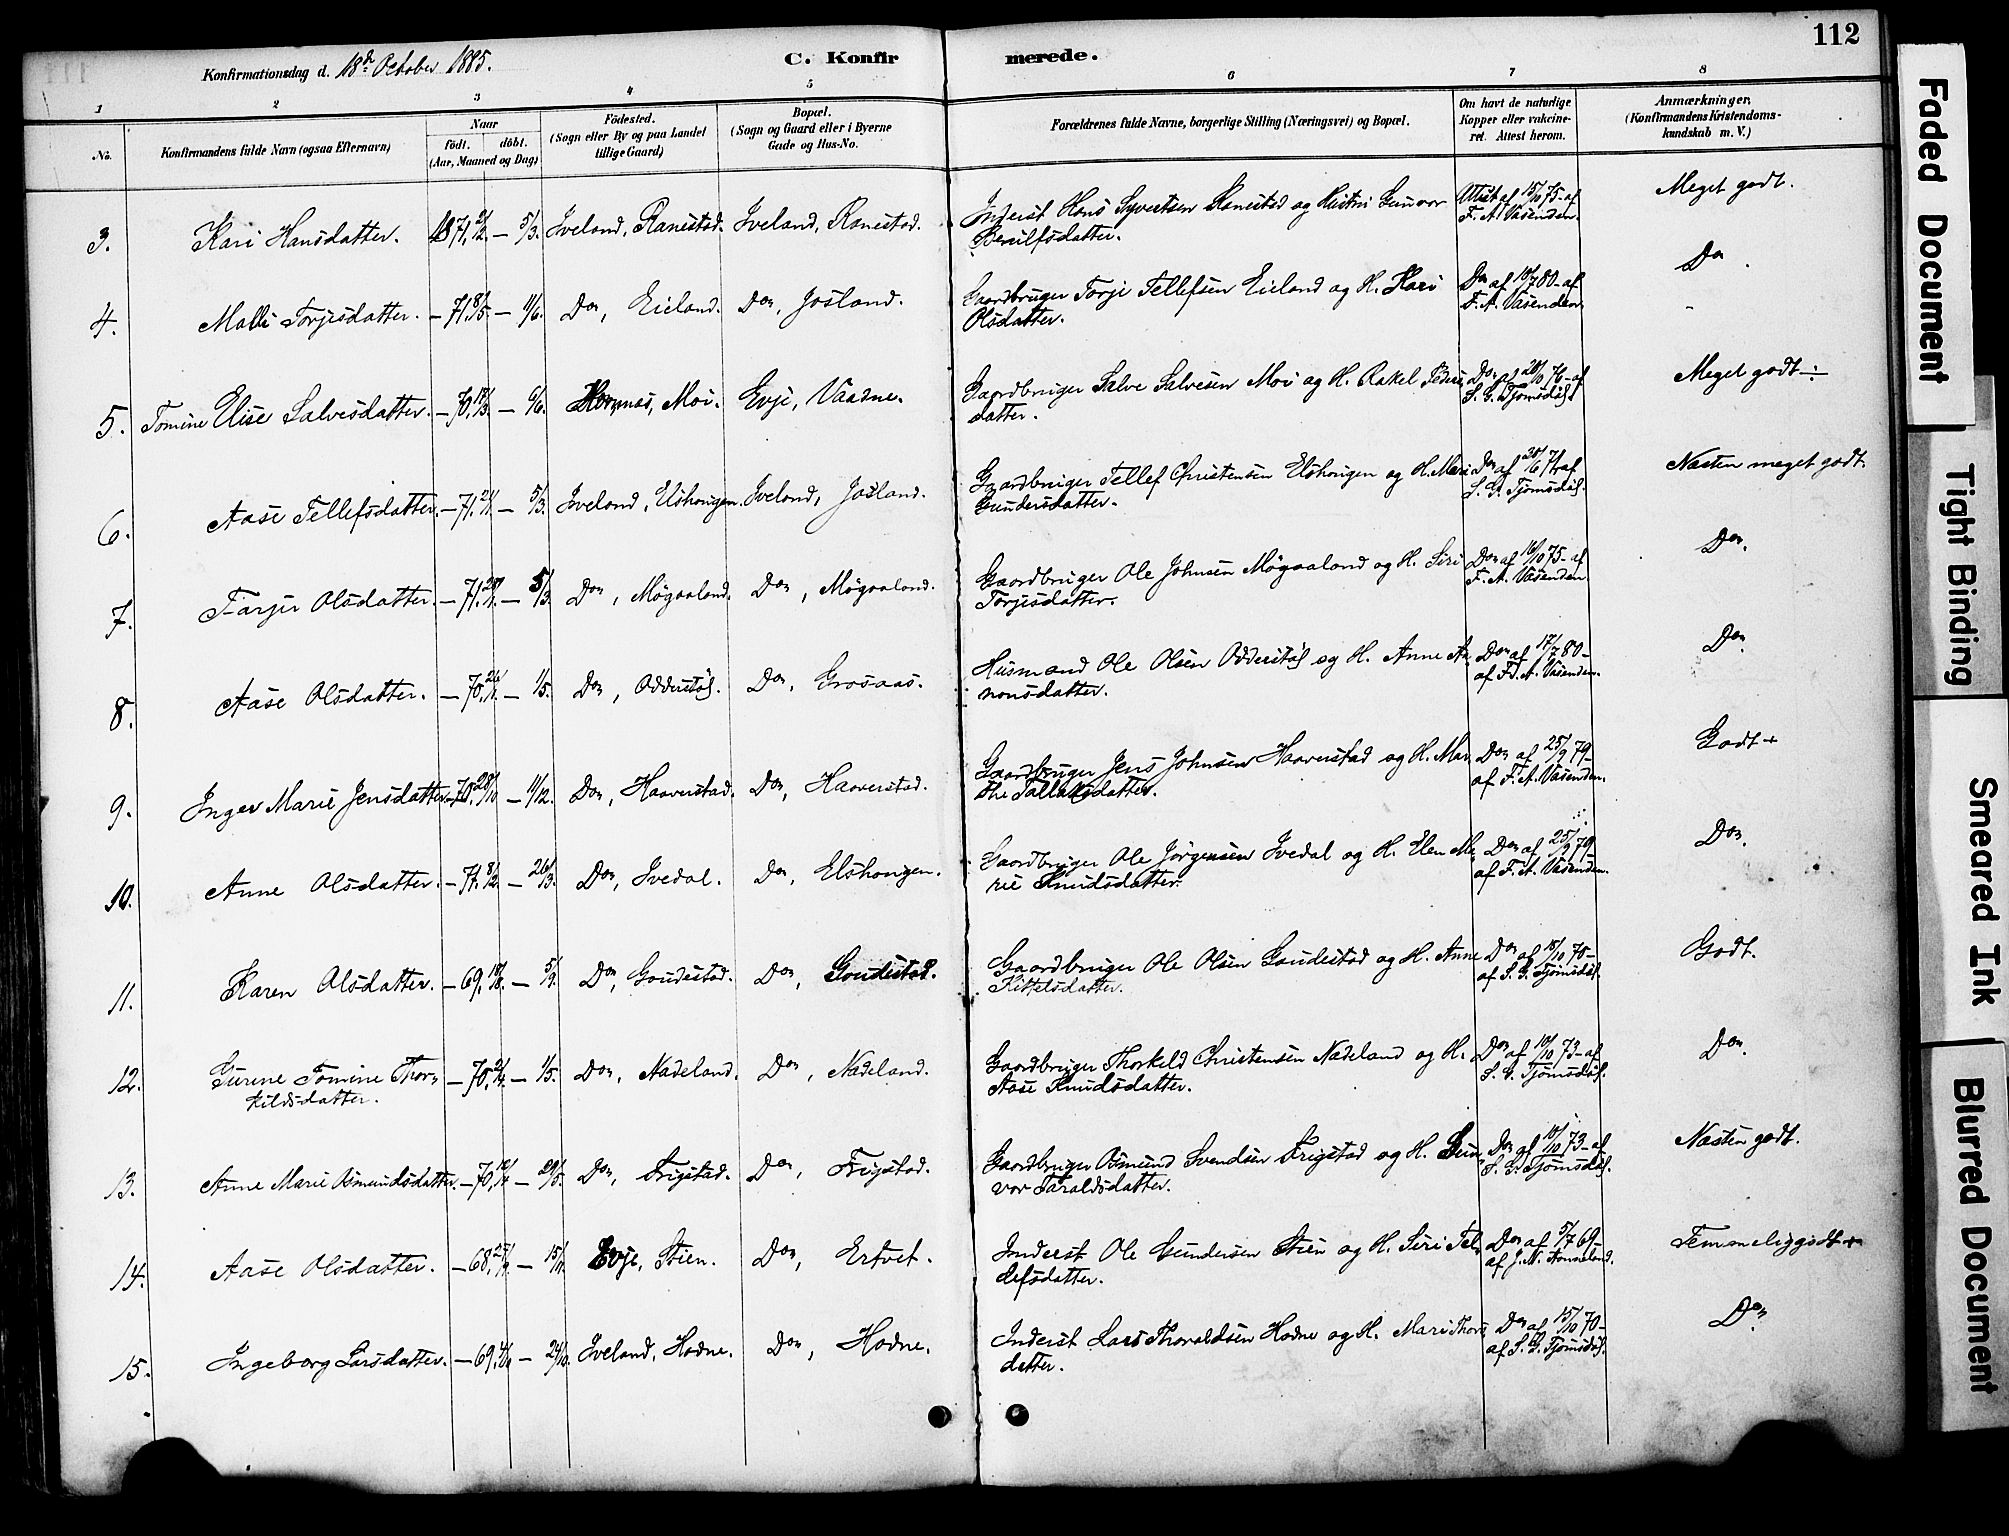 112
Konfirmationsdag d. 18de October 1885.
C. Konfirmerede.
1 2 3 4 5 6 7 8
No.
Konfirmandens fulde Navn (ogsaa Efternavn)
Naar
födt. döbt.
(Aar, Maaned og Dag)
Födested.
(Sogn eller By og paa Landet
tillige Gaard)
Bopæl.
(Sogn og Gaard eller i Byerne
Gade og Hus-No.
Forældrenes fulde Navne, borgerlige Stilling (Næringsvei) og Bopæl.
Om havt de naturlige
Kopper eller vakcine-
ret. Attest herom.
Anmærkninger,
(Konfirmandens Kristendoms-
kundskab m. V.)
3. Kari Hansdatter. 1871, – 5/3. Iveland, Ranestad. Iveland, Ranestad. Inderst Hans Syvertsen Ranestad og Hustru Gunvor Attest af 15/10 75 af Meget godt.
Berulfsdatter. F. A. Vasenden.
4. Malli Torjesdatter. – 71, 8/5 – 11/6. Do, Eieland. Do, Josland. Gaardbruger Torje Tellefsen Eieland og H. Kari Do af 19/7 80 af Do.
Olsdatter. F. A. Vasenden.
5. Tomine Elise Salvesdatter. – 70, – 6/6. Hornnes, Moi. Evje, Vaadne. Gaardbruger Salve Salvesen Moi og H. Rakel Peders Do af 28/10 76 af Meget godt ÷
datter. S. G. Tjomsdal.
6. Aase Tellefsdatter. – 71, 21/1 – 5/3. Iveland, Elshougen. Iveland, Josland. Gaardbruger Tellef Christensen Elshougen og H. Mari Do af af Næsten meget godt.
Gundersdatter. S. G. Tjomsdal.
7. Tarjer Olsdatter. – 71, – 5/3. Do, Møgaaland. Do, Møgaaland. Gaardbruger Ole Johnsen Møgaaland og H. Siri Do af 16/10 75 af Do.
Torjesdatter. F. A. Vasenden
8. Aase Olsdatter. – 70, – 1/5. Do, Odderstøl. Do, Grosaas. Husmand Ole Olsen Odderstøl og H. Anne Aa- Do af 17/7 80 – Do.
nonsdatter. af F. A. Vasenden.
9. Inger Marie Jensdatter – 70, 28/10 – 11/12. Do, Haaverstad. Do, Haaverstad. Gaardbruger Jens Johnsen Haaverstad og H. Mar- Do af 25/9 79 – Godt +
the Tallaksdatter. af F. A. Vasenden.
10. Anne Olsdatter. – 71, 8/2 – 26/3. Do, Ivedal. Do, Elshougen. Gaardbruger Ole Jørgensen Ivedal og H. Elen Ma- Do af 25/9 79 Do.
rie Knudsdatter. af F. A. Vasenden.
11. Karen Olsdatter. – 69, 18/8. – 5/9. Do, Goudestad. Do, Goudestad. Gaardbruger Ole Olsen Goudestad og H. Anne Do af 15/10 70 – Godt.
Kittelsdatter. af S. G. Tjomsdal.
12. Gurene Tomine Thor- – 70, – 1/5. Do, Nadeland. Do, Nadeland. Gaardbruger Thorkeld Christensen Nadeland og H. Do af 10/10 73 – af Do.
kildsdatter. Aase Knudsdatter. S. G. Tjomsdal.
13. Anne Marie Osmundsdatter. – 70, – 29/5. Do, Frigstad. Do, Frigstad. Gaardbruger Osmund Svendsen Frigstad og H. Gun- Do af 10/10 73 – af Næsten godt.
vor Taraldsdatter. S. G. Tjomsdal.
14. Aase Olsdatter. – 68, 27/9. – 15/11. Evje, Stien. Do, Ertvet. Inderst Ole Gundersen Stien og H. Siri Tel- Do af 5/7 69 – Temmelig godt +
lefsdatter. af J. N. Aanneland.
15. Ingeborg Larsdatter. – 69, – 24/10. Iveland, Hodne. Do, Hodne. Inderst Lars Thoraldsen Hodne og H. Mari Thors- Do af 15/10 70 – Do.
datter. af S. G. Tjomsdal.
Faded Document
Tight Binding
Smeared Ink
Blurred Document